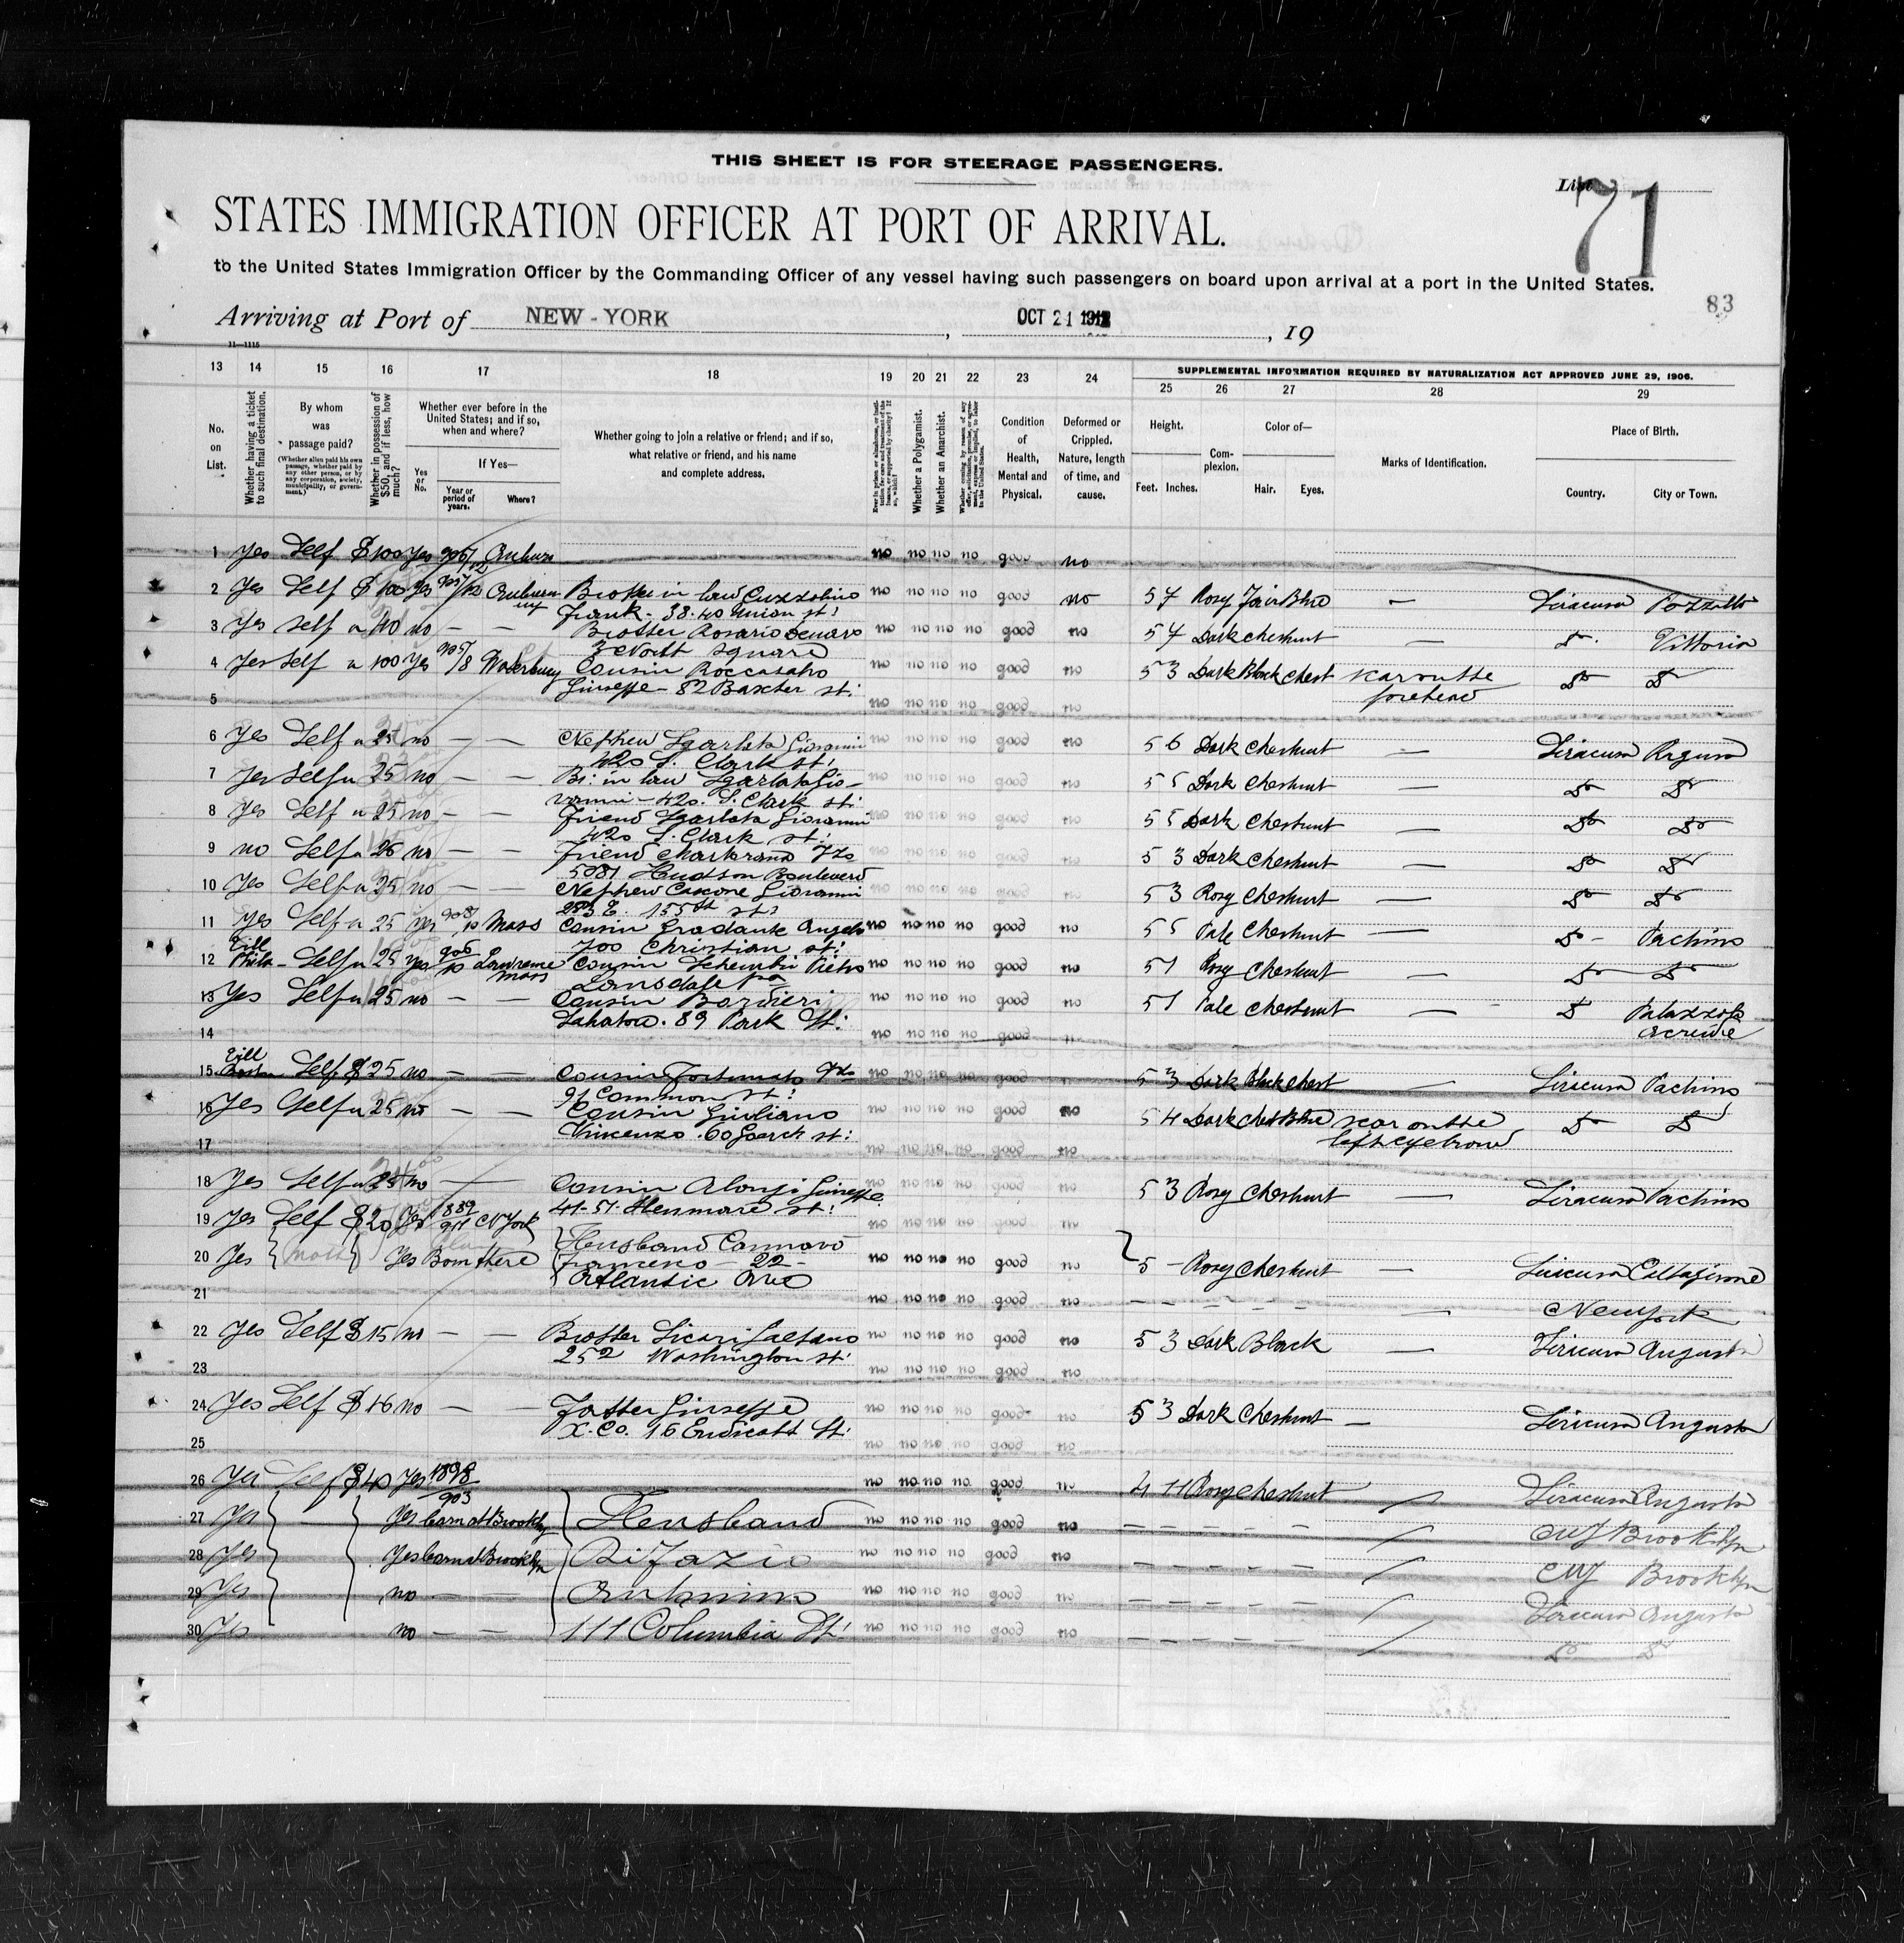 THIS SHEET IS FOR STEERAGE PASSENGERS.
List 71
STATES IMMIGRATION OFFICER AT PORT OF ARRIVAL.
to the United States Immigration Officer by the Commanding Officer of any vessel having such passengers on board upon arrival at a port in the United States.
83
Arriving at Port of NEW-YORK, OCT 21 1912, 19
11—1115
13 14 15 16 17 18 19 20 21 22 23 24
SUPPLEMENTAL INFORMATION REQUIRED BY NATURALIZATION ACT APPROVED JUNE 29, 1906.
25 26 27 28 29
No. on List.
Whether having a ticket to such final destination.
By whom was passage paid?
(Whether alien paid his own passage, whether paid by any other person, or by any corporation, society, municipality, or government.)
Whether in possession of $50, and if less, how much?
Whether ever before in the United States; and if so, when and where?
Yes or No.
If Yes—
Year or period of years.
Where?
Whether going to join a relative or friend; and if so, what relative or friend, and his name and complete address.
Whether a Polygamist.
Whether an Anarchist.
Condition of Health, Mental and Physical.
Deformed or Crippled. Nature, length of time, and cause.
Height.
Feet. Inches.
Complexion.
Color of—
Hair. Eyes.
Marks of Identification.
Place of Birth.
Country. City or Town.
1 Yes Self $100 Yes Auburn no no no no good no
2 Yes Self $100 Yes Auburn Brother in law Cuzzolino no no no no good no 5 7 Rosy Fair Blue — Siracusa Pozzallo
Frank - 38-40 Union st:
3 Yes Self " 40 no — — Brother Rosario no no no no good no 5 4 Dark Chestnut — Do Vittoria
3 North Square
4 Yes Self " 100 Yes Waterbury Cousin Roccasalvo no no no no good no 5 3 Dark Black Chest scar on the Do Do
Giuseppe - 82 Baxter st: forehead
5 no no no no good no
6 Yes Self " no — — Nephew Sgarlata Giovanni no no no no good no 5 6 Dark Chestnut — Siracusa Ragusa
420 S. Clark st:
7 Yes Self " 25 no — — Br: in law Sgarlata Gio- no no no no good no 5 5 Dark Chestnut — Do Do
vanni - 420. S. Clark st:
8 Yes Self " 25 no — — Friend Sgarlata Giovanni no no no no good no 5 5 Dark Chestnut — Do Do
420 S. Clark st:
9 no Self " 25 no — — Friend no no no no good no 5 3 Dark Chestnut — Do Do
Hudson Boulevard
10 Yes Self " 25 no — — Nephew Cascone Giovanni no no no no good no 5 3 Rosy Chestnut — Do Do
155th st:
11 Yes Self " 25 Yes Mass Cousin Gradante Angelo no no no no good no 5 5 Pale Chestnut — Do - Pachino
700 Christian st:
12 Till Phila - Self " 25 yes Lawrence Mass Cousin Schembri Pietro no no no no good no 5 1 Rosy Chestnut — Do Do
Lansdale Pa
13 Yes Self " 25 no — — Cousin no no no no good no 5 1 Pale Chestnut — Do Palazzolo Acreide
89 Park St:
14 no no no no good
15 Till Boston Self $25 no — — Cousin Fortunato no no no no good 5 3 Dark Black Chest — Siracusa Pachino
91 Common st:
16 Yes Self " 25 no — — Cousin Giuliano no no no no good no 5 4 Dark Chest Blue scar on the Do Do
Vincenzo. 60 Goerck st: left eyebrow
17 no no no no good no
18 Yes Self " no — Cousin Alonzi Giuseppe no no no no good no 5 3 Rosy Chestnut — Siracusa Pachino
19 Yes Self $20 Yes N York no no no no good no
20 Yes Yes Born there Husband Cannavò no no no no good no 5 - Rosy Chestnut — Siracusa Caltagirone
Francesco - 22 -
Atlantic Ave
21 no no no no good no — New York
22 Yes Self $15 no — — Brother Licari Gaetano no no no no good no 5 3 Dark Black — Siracusa Augusta
252 Washington st:
23 no no no no good no
24 Yes Self $16 no — — Father Giuseppe no no no no good no 5 3 Dark Chestnut — Siracusa Augusta
16 Endicott St:
25 no no no no good no
26 Yes Self $40 Yes 1898 903 no no no no good no 4 11 Rosy Chestnut Siracusa Augusta
27 Yes Yes born at Brooklyn Husband no no no no good no NY Brooklyn
28 Yes Yes born at Brooklyn Di Fazio no no no no good no NY Brooklyn
29 Yes no — Antonino no no no no good no Siracusa Augusta
30 Yes no — — 111 Columbia St: no no no no good no Do Do